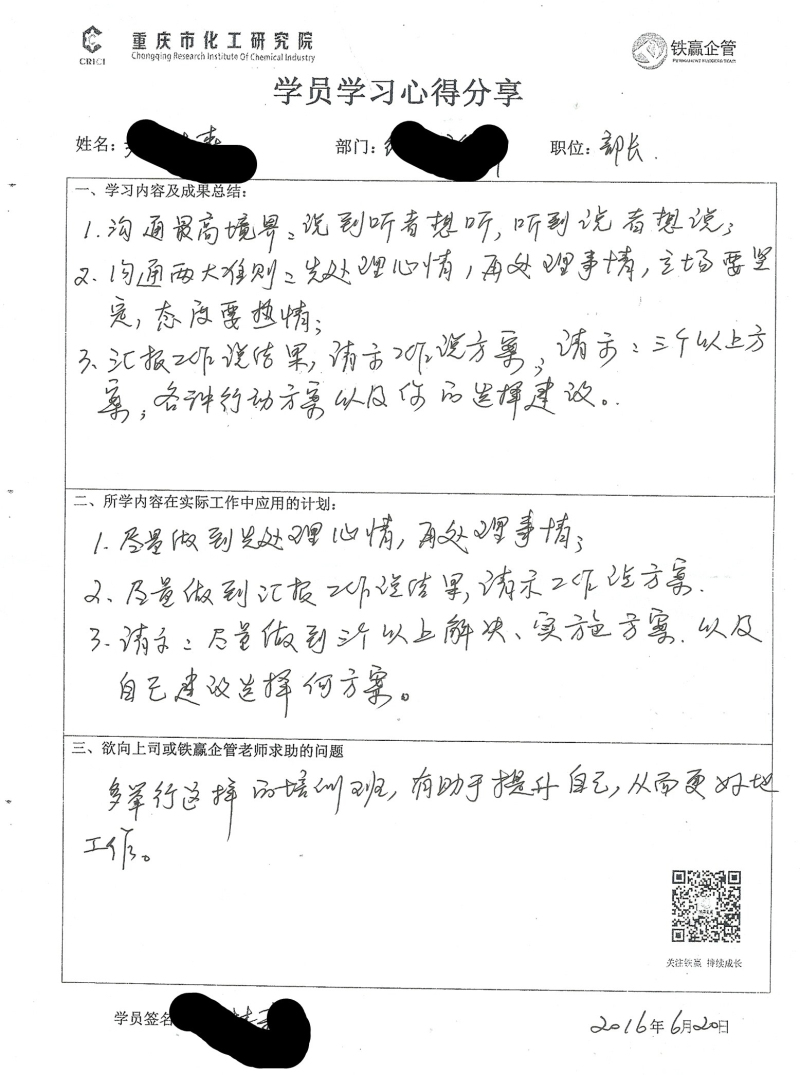 CRICI
重庆市化工研究院
Chongqing Research Institute Of Chemical Industry
铁赢企管
学员学习心得分享
姓名:
部门:
职位: 部长.
一、学习内容及成果总结:
1. 沟通最高境界:说到听者想听,听到说者想说;
2. 沟通两大准则:先处理心情,再处理事情,立场要坚
定,态度要热情;
3. 汇报工作说结果,请示工作说方案;请示:三个以上方
案,各种行动方案以及你的选择建议。
二、所学内容在实际工作中应用的计划:
1. 尽量做到先处理心情,再处理事情;
2、尽量做到汇报工作说结果,请示工作说方案.
3. 请示:尽量做到三个以上解决、实施方案.以及
自己建议选择何方案。
三、欲向上司或铁赢企管老师求助的问题
多举行这样的培训班,有助于提升自己,从而更好地
工作。
关注铁赢 持续成长
学员签名
2016年6月20日